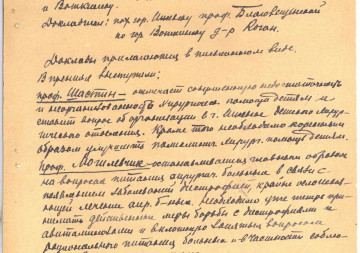 и Воткинску.
Докладчики: по гор. Ижевску проф. Благовещенский
по гор Воткинску д-р Коган.
Доклады прилагаются в письменном виде.
В прениях выступили:
проф. Шастин - отмечает совершенную недостаточность
и неорганизованность хирургической помощи детям и
ставит вопрос об организации в г. Ижевске детского хирур-
гического отделения. Кроме того необходимо коренным
образом улучшить хирург. помощь детям.
Проф. Могилевчик - останавливается главным образом
на вопросах питания хирургич. больных в связи с
появлением заболеваний дистрофии, крайне осложня-
ющей лечение хир. б-ных. Необходимо уже теперь при-
нимать действенные меры борьбы с дистрофиями и
авитаминозами и вплотную заняться вопросами
рационального питания больных и в частности соблю-